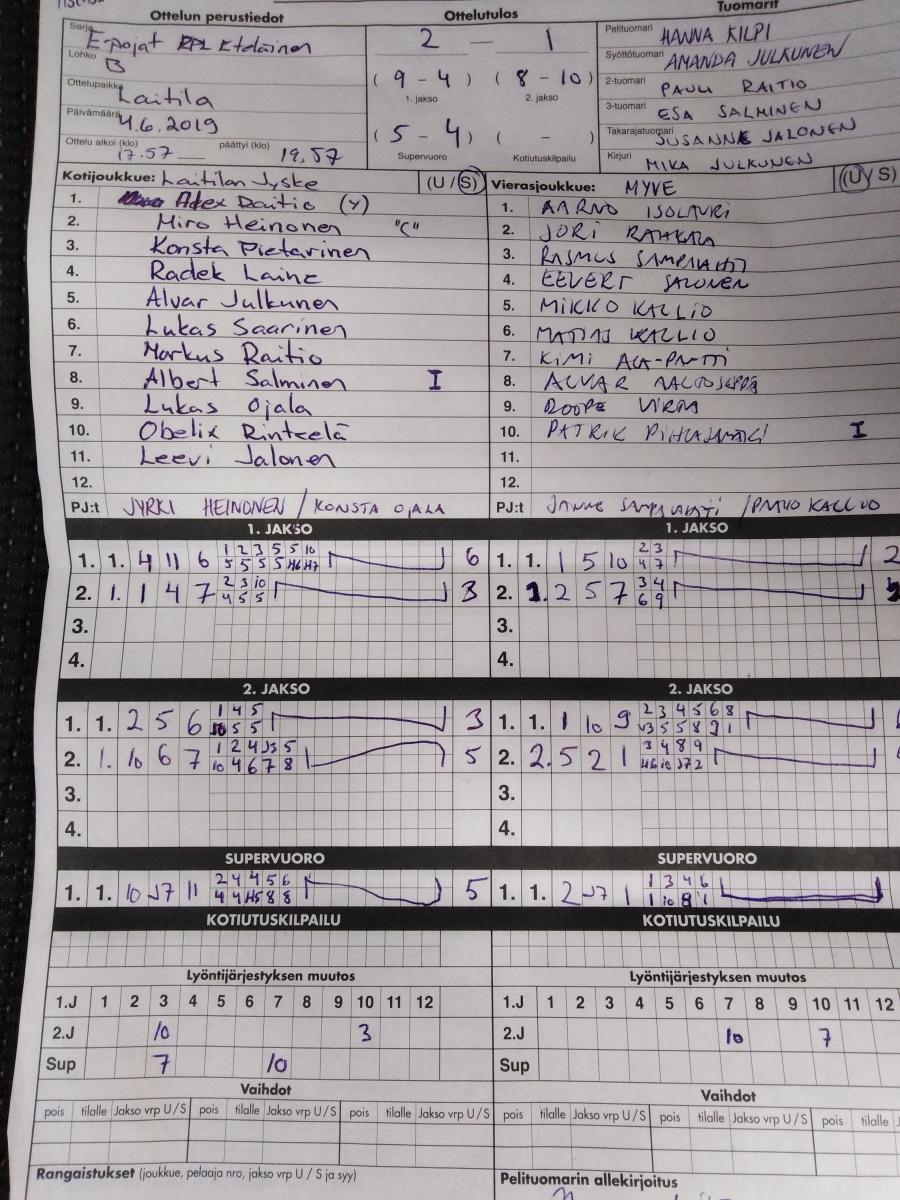 Ottelun perustiedot
Ottelutulos
Tuomarit
Sarja E-pojat Eteläinen
Lohko B
Ottelupaikka Laitila
Päivämäärä 4.6.2019
Ottelu alkoi (klo) 17.57 päättyi (klo) 19.57
2 — 1
(9 - 4) (8 - 10)
1. jakso 2. jakso
(5 - 4) ( - )
Supervuoro Kotiutuskilpailu
Pelituomari HANNA KILPI
Syöttötuomari AMANDA JULKUNEN
2-tuomari PAULI RAITIO
3-tuomari ESA SALMINEN
Takarajatuomari SUSANNE JALONEN
Kirjuri MIKA JULKUNEN
Kotijoukkue: Laitilan Jyske (U / S)
1. Alex Raitio (Y)
2. Miro Heinonen "C"
3. Konsta Pietarinen
4. Radek Laine
5. Alvar Julkunen
6. Lukas Saarinen
7. Markus Raitio
8. Albert Salminen I
9. Lukas Ojala
10. Obelix Rinteelä
11. Leevi Jalonen
12.
PJ:t JYRKI HEINONEN / KONSTA OJALA
Vierasjoukkue: MYVE (U / S)
1. AARNO ISOLAURI
2. JORI
3. RASMUS SAMPALAHTI
4. EEVERT SALONEN
5. MIKKO KALLIO
6. MATIAS KALLIO
7. KIMI ALA-PNTTI
8. ALVAR AALTOSEPPÄ
9. ROOPE
10. PATRIK PIHLAJAMÄKI I
11.
12.
PJ:t JANNE SAMPALAHTI / KALLIO
1. JAKSO
1. 1. 4 11 6 1 2 3 5 5 10 6
5 5 5 5 H6 H7
2. 1. 1 4 7 2 3 10 3
4 5 5
3.
4.
1. JAKSO
1. 1. 1 5 10 2 3 2
4 7
2. 1. 2 5 7 3 4
6 9
3.
4.
2. JAKSO
1. 1. 2 5 6 1 4 5 3
10 5 5
2. 1. 10 6 7 1 2 4 J5 5 5
10 4 6 7 8
3.
4.
2. JAKSO
1. 1. 1 10 9 2 3 4 5 6 8
J3 5 5 8 9 1
2. 2. 5 2 1 3 4 8 9
H6 10 J7 2
3.
4.
SUPERVUORO
1. 1. 10 J7 11 2 4 4 5 6 5
4 4 H5 8 8
SUPERVUORO
1. 1. 2 J7 1 1 3 4 6
1 10 8 1
KOTIUTUSKILPAILU
KOTIUTUSKILPAILU
Lyöntijärjestyksen muutos
1.J 1 2 3 4 5 6 7 8 9 10 11 12
2.J 10 3
Sup 7 10
Lyöntijärjestyksen muutos
1.J 1 2 3 4 5 6 7 8 9 10 11 12
2.J 10 7
Sup
Vaihdot
pois tilalle Jakso vrp U / S pois tilalle Jakso vrp U / S pois tilalle Jakso vrp U / S
Vaihdot
pois tilalle Jakso vrp U / S pois tilalle Jakso vrp U / S pois tilalle
Rangaistukset (joukkue, pelaaja nro, jakso vrp U / S ja syy)
Pelituomarin allekirjoitus